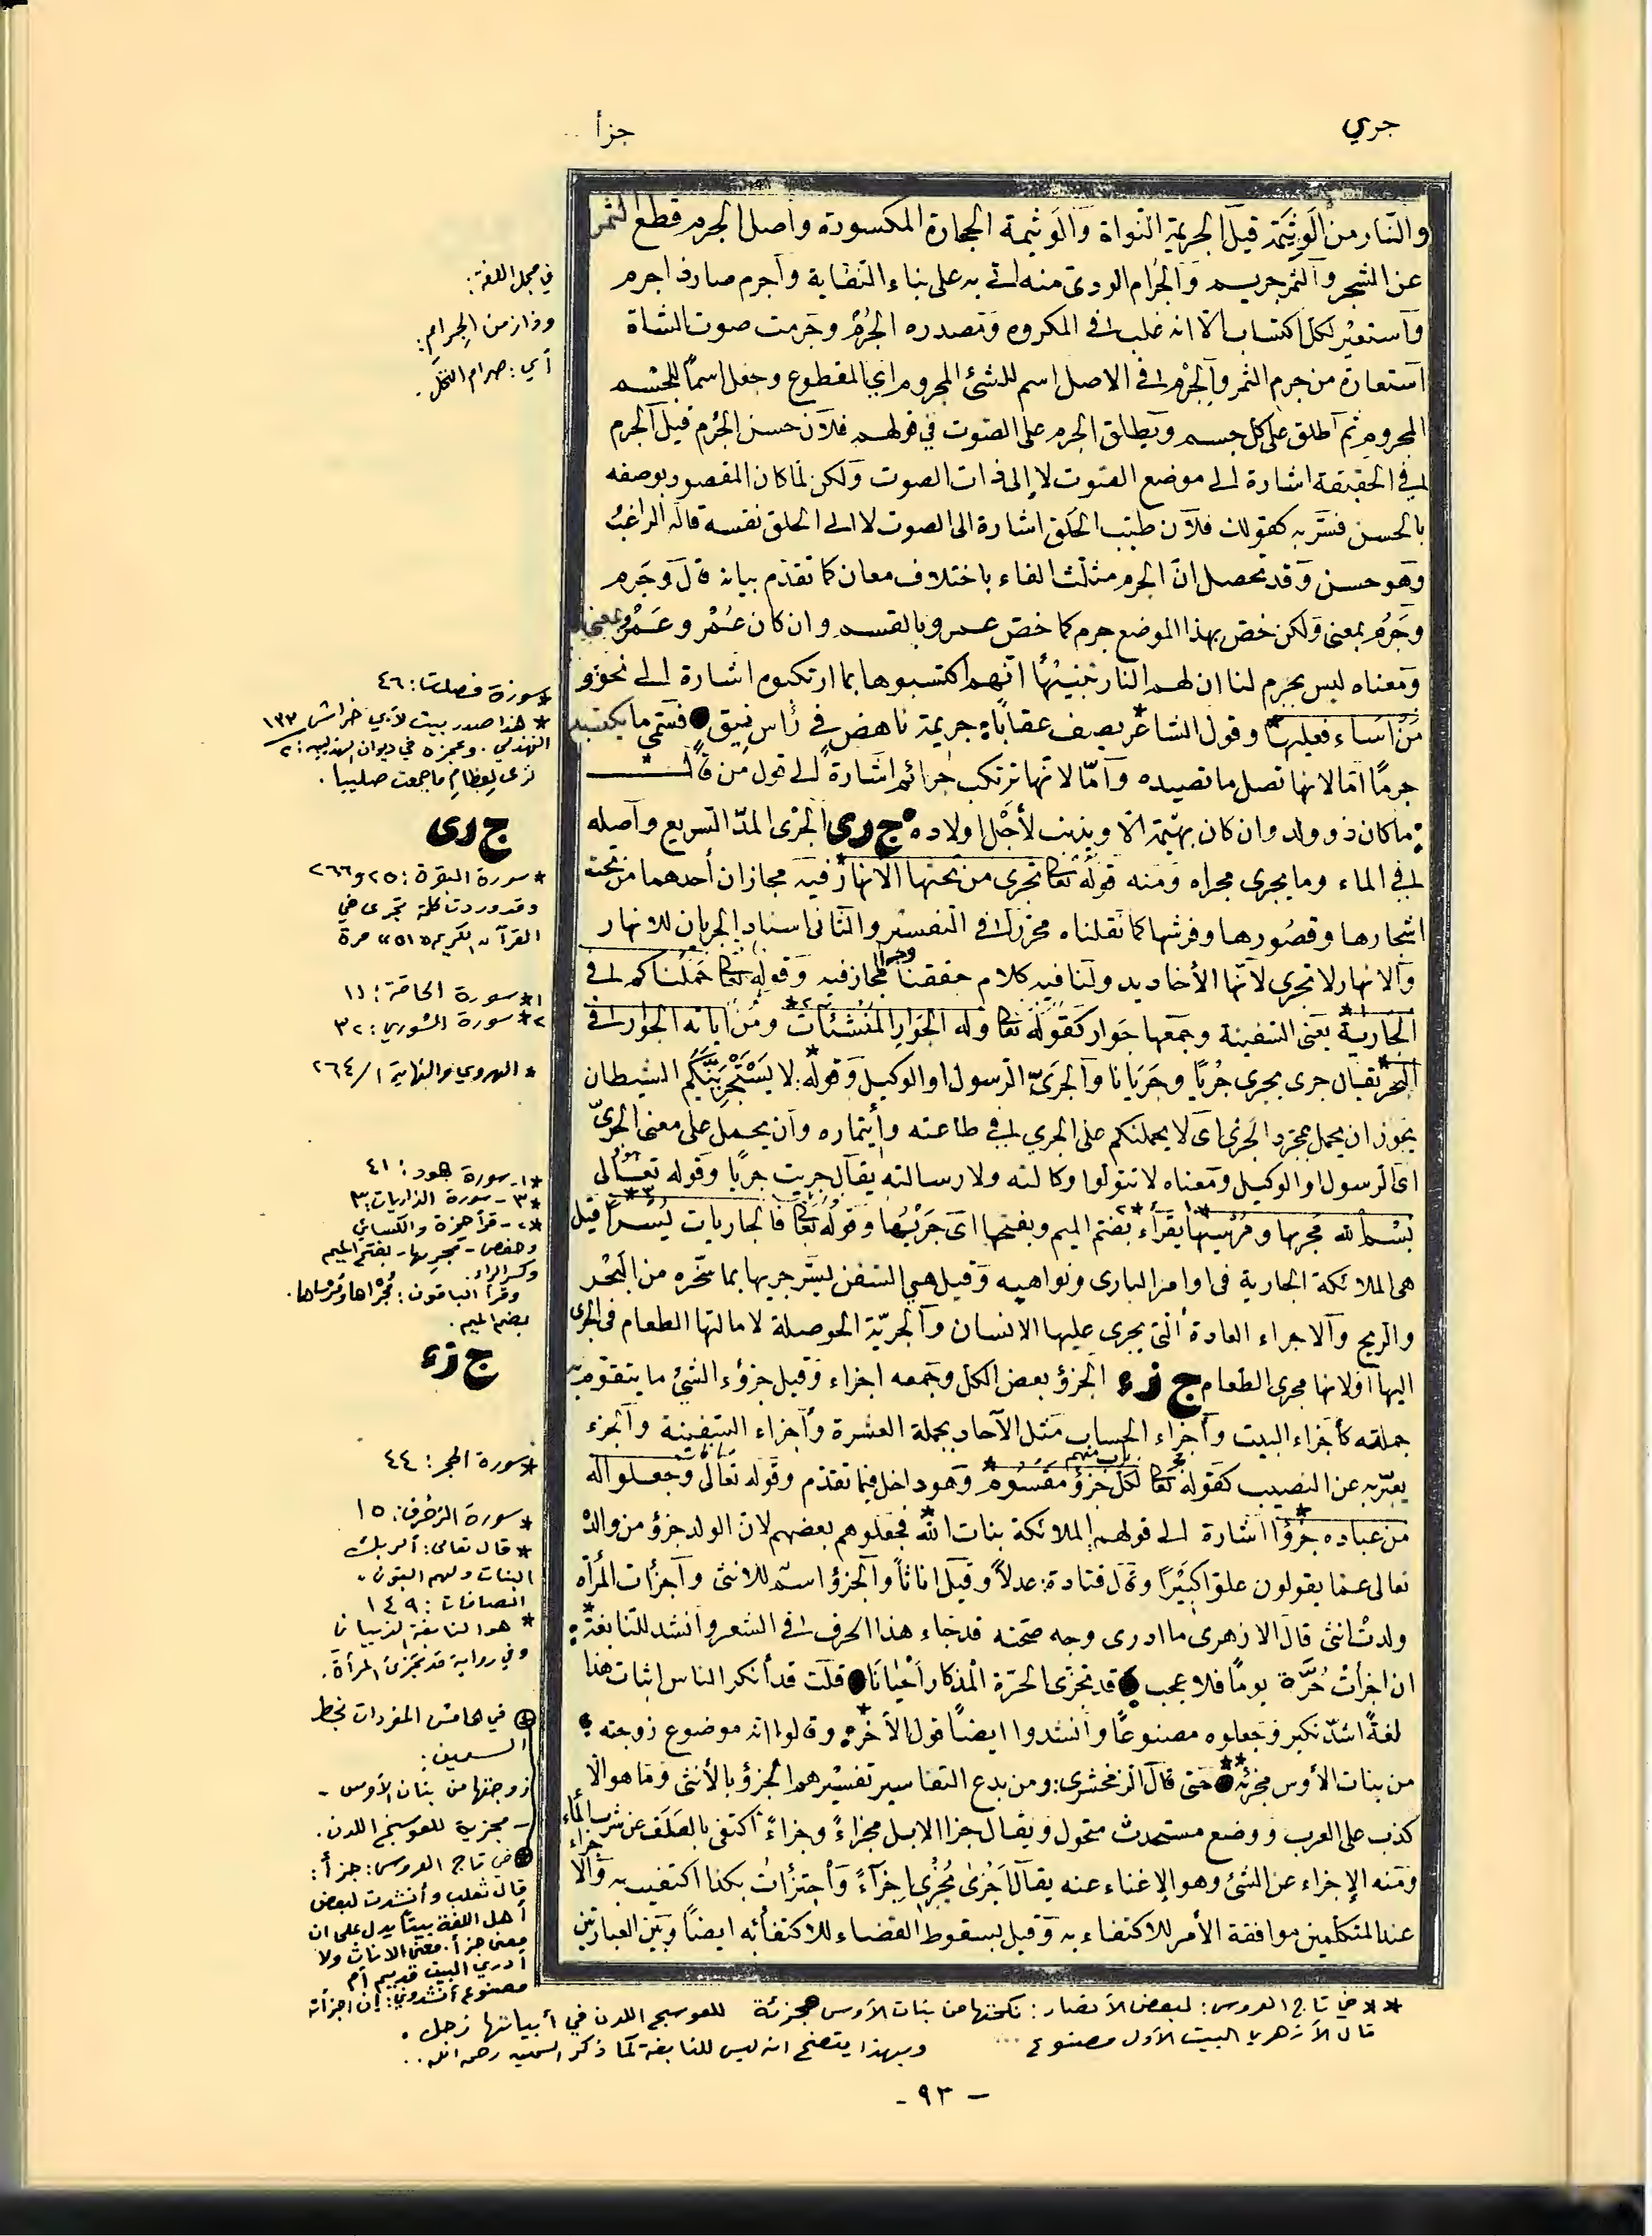 جري
جزأ
والنار من الوثيمة قيل الجريمة النواة والوثيمة الحجارة المكسورة وأصل الجرم قطع الثمر
عن الشجر والثمر جريم والجرام الردئ منه أتى به على بناء النفاية وأجرم صار ذا جرم
وأستعير لكل اكتساب الا انه غلب فى المكروه ومصدره الجرم وجرمت صوف الشاة
أستعارة من جرم الثمر والجرم فى الاصل اسم للشئ المجروم اي المقطوع وجعل اسماً للجسم
المجروم ثم أطلق على كل جسم ويطلق الجرم على الصوت في قولهم فلان حسن الجرم قيل الجرم
فى الحقيقة اشارة الى موضع الصوت لا إلى ذات الصوت ولكن لما كان المقصود بوصفه
بالحسن فسّر به كقولك فلان طيب الحلق اشارة الى الصوت لا الى الحلق نفسه قاله الراغب
وهو حسن وقد تحصل انّ الجرم مثلث الفاء باختلاف معان كما تقدم بيانه قال وجرم
وجرم بمعنى ولكن خص بهذا الموضع جرم كما خص عمرو بالقسم وان كان عُمْر وعَمْر بمعنى
ومعناه ليس بجرم لنا ان لهم النار تنبيهًا انهم اكتسبوها بما ارتكبوه اشارة الى نحو و
مَنْ اسَاء فعليها* وقول الشاعر* يصف عقابًا: جريمة ناهض في رأس نيق فسمّي ما يكتسبه
جرمًا امّا لانها تصل ما تصيده وأمّا لانها ترتكب جرائم اشارةً الى قول من قال
: ما كان ذو ولد وان كان بهيمة الا ويذنب لأجل اولاده ج رى الجرى المدّ السريع وأصله
فى الماء وما يجرى مجراه ومنه قوله تعالى تجرى من تحتها الانهار* فيه مجازان أحدهما من تحت
اشجارها وقصورها وفرشها كما نقلناه محررًا فى التفسير والثانى اسناد الجريان للانهار
والانهار لا تجرى لأنّها الأخاديد ولنا فيه كلام حققنا وجه المجاز فيه وقوله تعالى حملناكم فى
الجارية* يعنى السفينة وجمعها جوار كقوله تعالى وله الجوار المنشئات* ومن اياته الجوار فى
البحر* يقال جرى يجرى جريًا وجريانا والجرىّ الرسول او الوكيل وقوله*: لا يَسْتَجْرِيَنَّكُم الشيطان
يجوز ان يحمل بمجرد الجرى اى لا يحملنكم على الجري فى طاعته وأيتماره وأن يحمل على معنى الجرىّ
اى الرسول او الوكيل ومعناه لا تتولوا وكالته ولا رسالته يقال جريت جريًا وقوله تعالى
بسم الله مجريها ومرسيها* يقرأ* بضم الميم وبفتحها اى جَرْيُها وقوله تعالى فالجاريات يُسْرًا* قيل
هى الملائكة الجارية فى اوامر البارى ونواهيه وقيل هي السفن ليسر جريها بما سخره من البحر
والريح والاجراء العادة التى يجرى عليها الانسان والجريّة الحوصلة لامالتها الطعام فى الجرى
اليها أولانها مجرى الطعام ج زء الجزؤ بعض الكل وجمعه اجزاء وقيل جزؤ الشئ ما يتقوم به
جملته كأجزاء البيت وأجزاء الحساب مثل الآحاد بجملة العشرة وأجزاء السفينة والجزء
يعبّر به عن النصيب كقوله تعالى لكل باب منهم جزؤ مقسوم* وهو داخل فيما تقدم وقوله تعالى وجعلوا له
من عباده جزؤًا* اشارة الى قولهم الملائكة بنات الله* فجعلوهم بعضهم لان الولد جزؤ من والده
تعالى عما يقولون علوًا كبيرًا وقال قتادة: عدلاً وقيل اناثاً والجزؤ اسم للانثى وأجزأت المرأة
ولدت انثى قال الازهرى ما ادرى وجه صحته قد جاء هذا الحرف فى الشعر وأنشد للنابغة*:
ان اجزأت حُرَّة يومًا فلا عجب قد تجزى الحرّة المذكار أحيانًا قلت قد أنكر الناس إثبات هذا
لغةً اشدّ نكير وجعلوه مصنوعًا وأنشدوا ايضًا قول الاخر*: وقالوا انه موضوع زوجته:
من بنات الأوس مجزئة** حتى قال الزمخشرى: ومن بدع التفاسير تفسيرهم الجزؤ بالأنثى وما هو الا
كذب على العرب ووضع مستحدث متحول ويقال جزا الابل مجزاءً وجزاءً أكتفى بالعلف عن شرب الماء
ومنه الإجزاء عن الشئ وهو الإغناء عنه يقال أجزى مُجْزِى اجزآءً وأجتزأت بكذا اكتفيت به والاجزاء
عند المتكلمين موافقة الأمر للاكتفاء به وقيل لسقوط القضاء للاكتفأبه ايضًا وبين العبارتين
في مجمل اللغة:
وذا زمن الجِرام:
أي: صرام النخل.
* سورة فصلت: ٤٦
* هذا صدر بيت لأبي خراش
الهذلي. وعجزه في ديوان الهذليين: ٢/ ١٣٣
ترى لِعظامِ ما جمعت صليبا.
ج رى
* سورة البقرة: ٢٥ و٢٦٦
وقد وردت كلمة تجرى في
القرآن الكريم «٥١» مرة
١* سورة الحاقة: ١١
٢* سورة الشورى: ٣٢
* الهروي والنهاية ١/ ٢٦٤
*١- سورة هود: ٤١
*٣- سورة الذاريات: ٣
*٢- قرأ حمزة والكسائي
وحفص- مجريها- بفتح الميم
وكسر الراء.
وقرأ الباقون: مُجْراها ومُرْساها.
بضم الميم.
ج زء
* سورة الحجر: ٤٤
* سورة الزخرف: ١٥
* قال تعالى: ألربك
البنات ولهم البنون.
الصافات: ١٤٩
* هو النابغة الذبياني
وفي رواية قد تجزئ المرأة.
في هامش المفردات بخط
السمين:
زوجتها من بنات الأوس -
- مجزية للعوسج اللدن.
في تاج العروس: جزأ:
قال ثعلب وأنشدت لبعض
أهل اللغة بيتًا يدل على ان
معنى جزأ. معنى الاناث ولا
أدري البيت قديم أم
مصنوع أنشدوني: إن اجزأت
** في تاج العروس: لبعض الأنصار: نكحتها من بنات الأوس مجزئة للعوسج اللدن في أبياتها زجل.
قال الأزهري البيت الأول مصنوع ... وبهذا يتضح انه ليس للنابغة كما ذكر السمين رحمه الله..
- ٩٣ -